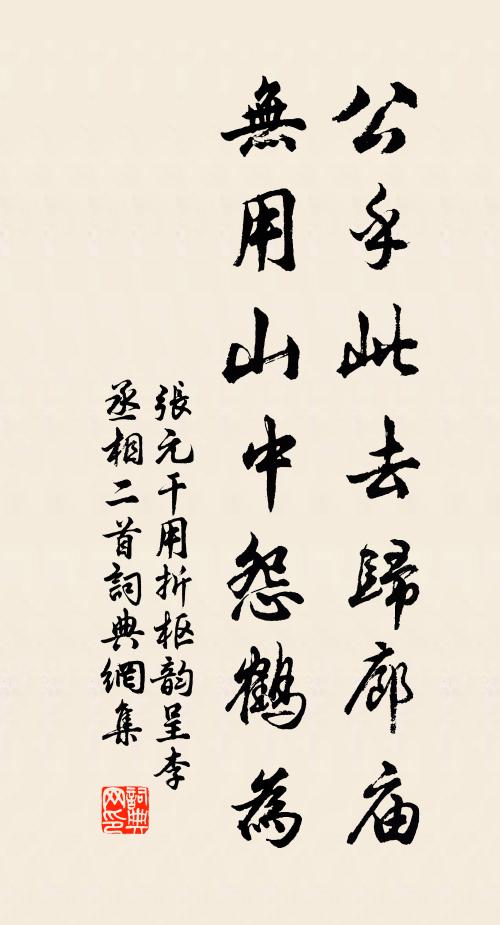 公乎此去歸廊庙
無用山中怨鶴為
張元干用折枢韵呈李
丞相二首詞典網集
詞典网印